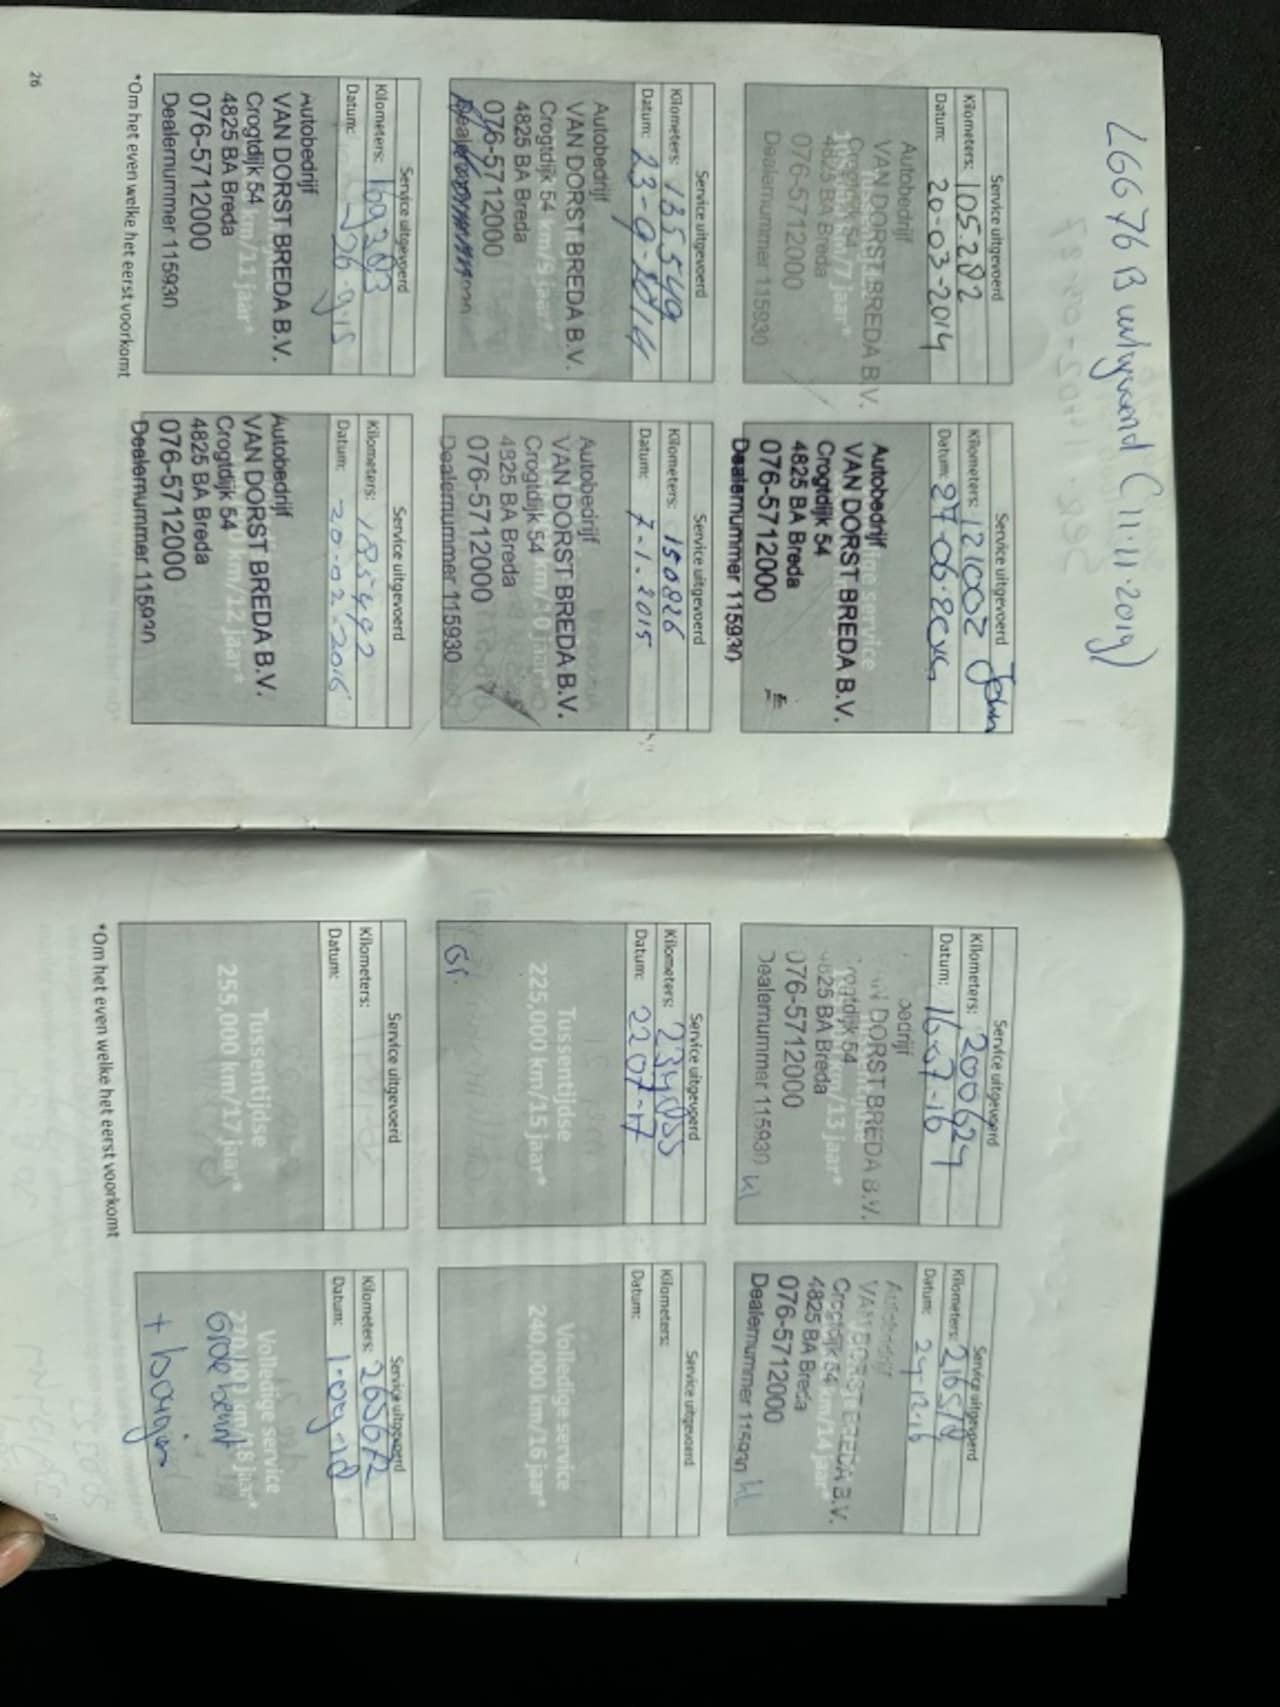 L6676B uitgevoerd (11.11.2019)
Service uitgevoerd
Kilometers: 105282
Datum: 20-03-2014
Autobedrijf
VAN DORST BREDA B.V.
Crogtdijk 54 /7 jaar*
4825 BA Breda
076-5712000
Dealernummer 115930
Service uitgevoerd
Kilometers: 121002 John
Datum: 27-06-2014
Autobedrijf service
VAN DORST BREDA B.V.
Crogtdijk 54
4825 BA Breda
076-5712000
Dealernummer 115930
Service uitgevoerd
Kilometers: 135549
Datum: 23-9-2014
Autobedrijf
VAN DORST BREDA B.V.
Crogtdijk 54 km/9 jaar*
4825 BA Breda
076-5712000
Service uitgevoerd
Kilometers: 150826
Datum: 7-1-2015
Autobedrijf
VAN DORST BREDA B.V.
Crogtdijk 54 km/10 jaar*
4825 BA Breda
076-5712000
Dealernummer 115930
Service uitgevoerd
Kilometers: 169283
Datum: 26-9-15
Autobedrijf
VAN DORST BREDA B.V.
Crogtdijk 54 km/11 jaar*
4825 BA Breda
076-5712000
Dealernummer 115930
Service uitgevoerd
Kilometers: 185492
Datum: 20-02-2016
Autobedrijf
VAN DORST BREDA B.V.
Crogtdijk 54 km/12 jaar*
4825 BA Breda
076-5712000
Dealernummer 115930
*Om het even welke het eerst voorkomt
26
Service uitgevoerd
Kilometers: 200624
Datum: 16-07-16
bedrijf
DORST BREDA B.V.
rogtdijk 54 /13 jaar*
4825 BA Breda
076-5712000
Dealernummer 115930
Service uitgevoerd
Kilometers: 216518
Datum: 24-12-16
Autobedrijf
VAN DORST BREDA B.V.
Crogtdijk 54 km/14 jaar*
4825 BA Breda
076-5712000
Dealernummer 115930
Service uitgevoerd
Kilometers: 234055
Datum: 22 07-17
Tussentijdse
225,000 km/15 jaar*
Gr.
Service uitgevoerd
Kilometers:
Datum:
Volledige service
240,000 km/16 jaar*
Service uitgevoerd
Kilometers:
Datum:
Tussentijdse
255,000 km/17 jaar*
Service uitgevoerd
Kilometers: 265672
Datum: 1-09-18
Volledige service
270,000 km/18 jaar*
Grote beurt
+ bougies
*Om het even welke het eerst voorkomt